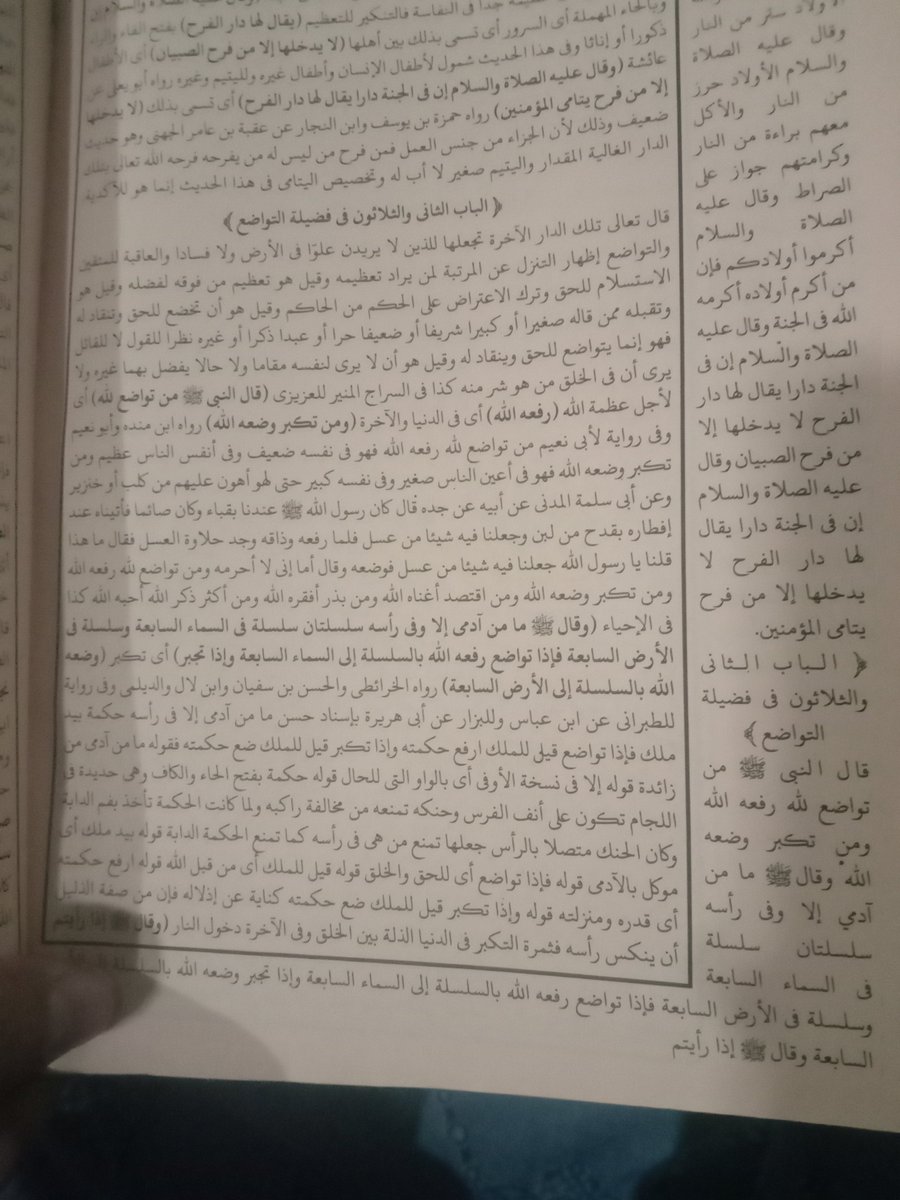 وبالحاء المهملة أى السرور أى تسمى بذلك بين أهلها (لا يدخلها إلا من فرح الصبيان) أى الأطفال
ذكورا أو إناثا وفى هذا الحديث شمول لأطفال الإنسان وأطفال غيره ولليتيم وغيره رواه أبو يعلى عن
عائشة (وقال عليه الصلاة والسلام إن فى الجنة دارا يقال لها دار الفرح) أى تسمى بذلك (لا يدخلها
إلا من فرح يتامى المؤمنين) رواه حمزة بن يوسف وابن النجار عن عقبة بن عامر الجهنى وهو حديث
ضعيف وذلك لأن الجزاء من جنس العمل فمن فرح من ليس له من يفرحه فرحه الله تعالى بتلك
الدار الغالية المقدار واليتيم صغير لا أب له وتخصيص اليتامى فى هذا الحديث إنما هو للآكدية
﴿ الباب الثانى والثلاثون فى فضيلة التواضع ﴾
قال تعالى تلك الدار الآخرة نجعلها للذين لا يريدون علوّا فى الأرض ولا فسادا والعاقبة للمتقين
والتواضع إظهار التنزل عن المرتبة لمن يراد تعظيمه وقيل هو تعظيم من فوقه لفضله وقيل هو
الاستسلام للحق وترك الاعتراض على الحكم من الحاكم وقيل هو أن تخضع للحق وتنقاد له
وتقبله ممن قاله صغيرا أو كبيرا شريفا أو ضعيفا حرا أو عبدا ذكرا أو غيره نظرا للقول لا للقائل
فهو إنما يتواضع للحق وينقاد له وقيل هو أن لا يرى لنفسه مقاما ولا حالا يفضل بهما غيره ولا
يرى أن فى الخلق من هو شر منه كذا فى السراج المنير للعزيزى (قال النبى ﷺ من تواضع لله) أى
لأجل عظمة الله (رفعه الله) أى فى الدنيا والآخرة (ومن تكبر وضعه الله) رواه ابن منده وأبو نعيم
وفى رواية لأبى نعيم من تواضع لله رفعه الله فهو فى نفسه ضعيف وفى أنفس الناس عظيم ومن
تكبر وضعه الله فهو فى أعين الناس صغير وفى نفسه كبير حتى لهو أهون عليهم من كلب أو خنزير
وعن أبى سلمة المدنى عن أبيه عن جده قال كان رسول الله ﷺ عندنا بقباء وكان صائما فأتيناه عند
إفطاره بقدح من لبن وجعلنا فيه شيئا من عسل فلما رفعه وذاقه وجد حلاوة العسل فقال ما هذا
قلنا يا رسول الله جعلنا فيه شيئا من عسل فوضعه وقال أما إنى لا أحرمه ومن تواضع لله رفعه الله
ومن تكبر وضعه الله ومن اقتصد أغناه الله ومن بذر أفقره الله ومن أكثر ذكر الله أحبه الله كذا
فى الإحياء (وقال ﷺ ما من آدمى إلا وفى رأسه سلسلتان سلسلة فى السماء السابعة وسلسلة فى
الأرض السابعة فإذا تواضع رفعه الله بالسلسلة إلى السماء السابعة وإذا تجبر) أى تكبر (وضعه
الله بالسلسلة إلى الأرض السابعة) رواه الخرائطى والحسن بن سفيان وابن لال والديلمى وفى رواية
للطبرانى عن ابن عباس وللبزار عن أبى هريرة بإسناد حسن ما من آدمى إلا فى رأسه حكمة بيد
ملك فإذا تواضع قيل للملك ارفع حكمته وإذا تكبر قيل للملك ضع حكمته فقوله ما من آدمى من
زائدة قوله إلا فى نسخة الأوفى أى بالواو التى للحال قوله حكمة بفتح الحاء والكاف وهى حديدة فى
اللجام تكون على أنف الفرس وحنكه تمنعه من مخالفة راكبه ولما كانت الحكمة تأخذ بفم الدابة
وكان الحنك متصلا بالرأس جعلها تمنع من هى فى رأسه كما تمنع الحكمة الدابة قوله بيد ملك أى
موكل بالآدمى قوله فإذا تواضع أى للحق والخلق قوله قيل للملك أى من قبل الله قوله ارفع حكمته
أى قدره ومنزلته قوله وإذا تكبر قيل للملك ضع حكمته كناية عن إذلاله فإن من صفة الذليل
أن ينكس رأسه فثمرة التكبر فى الدنيا الذلة بين الخلق وفى الآخرة دخول النار (وقال ﷺ إذا رأيتم
الأولاد ستر من النار
وقال عليه الصلاة
والسلام الأولاد حرز
من النار والأكل
معهم براءة من النار
وكرامتهم جواز على
الصراط وقال عليه
الصلاة والسلام
أكرموا أولادكم فإن
من أكرم أولاده أكرمه
الله فى الجنة وقال عليه
الصلاة والسلام إن فى
الجنة دارا يقال لها دار
الفرح لا يدخلها إلا
من فرح الصبيان وقال
عليه الصلاة والسلام
إن فى الجنة دارا يقال
لها دار الفرح لا
يدخلها إلا من فرح
يتامى المؤمنين.
﴿ الباب الثانى
والثلاثون فى فضيلة
التواضع ﴾
قال النبى ﷺ من
تواضع لله رفعه الله
ومن تكبر وضعه
الله وقال ﷺ ما من
آدمي إلا وفى رأسه
سلسلتان سلسلة
فى السماء السابعة
وسلسلة فى الأرض السابعة فإذا تواضع رفعه الله بالسلسلة إلى السماء السابعة وإذا تجبر وضعه الله بالسلسلة
السابعة وقال ﷺ إذا رأيتم